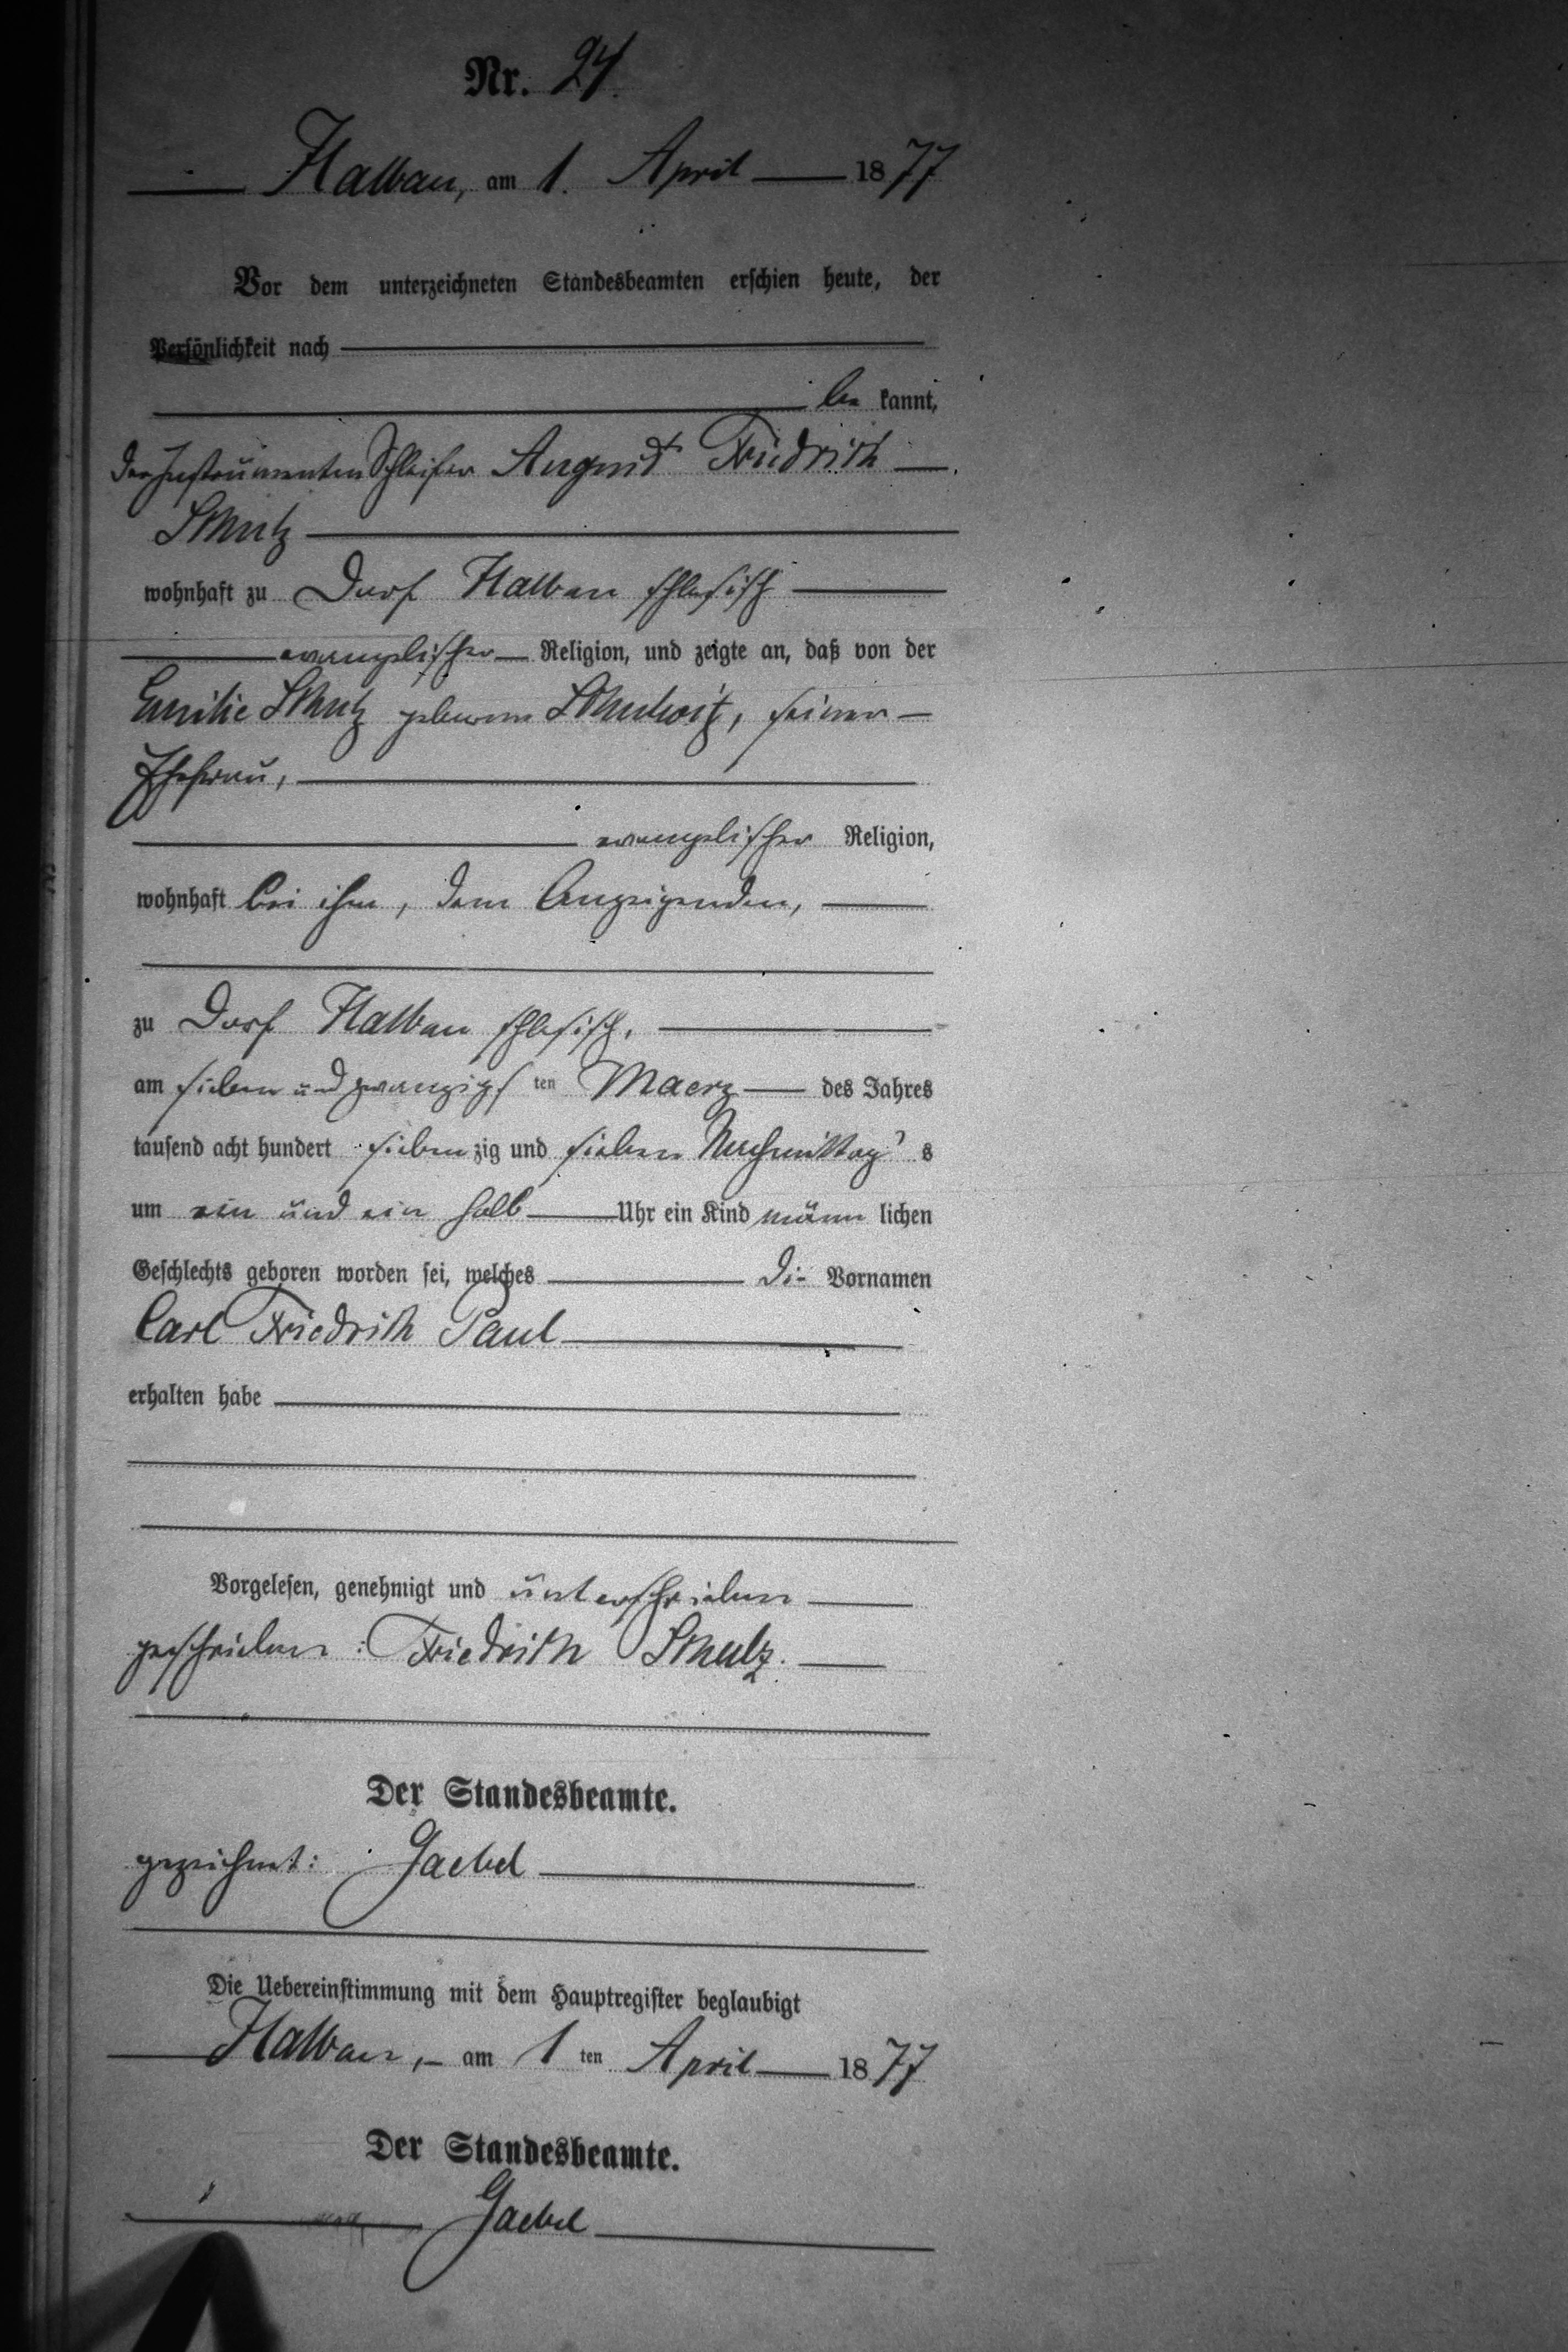 Nr. 24.
Halbau, am 1. April 1877
Vor dem unterzeichneten Standesbeamten erschien heute, der
Persönlichkeit nach
be kannt,
der Instrumenten Schleifer August Friedrich
Schulz
wohnhaft zu Dorf Halbau schlesisch
evangelischer Religion, und zeigte an, daß von der
Emilie Schulz geborene, seiner
Ehefrau,
evangelischer Religion,
wohnhaft bei ihm, dem Anzeigenden,
zu Dorf Halbau schlesisch,
am sieben und zwanzigs ten Maerz des Jahres
tausend acht hundert sieben zig und sieben Nachmittag s
um ein und ein halb Uhr ein Kind männ lichen
Geschlechts geboren worden sei, welches die Vornamen
Carl Friedrich Paul
erhalten habe
Vorgelesen, genehmigt und unterschrieben
geschrieben: Friedrich Schulz.
Der Standesbeamte.
gezeichnet: Gaebel
Die Uebereinstimmung mit dem Hauptregister beglaubigt
Halbau, am 1 ten April 1877
Der Standesbeamte.
Gaebel